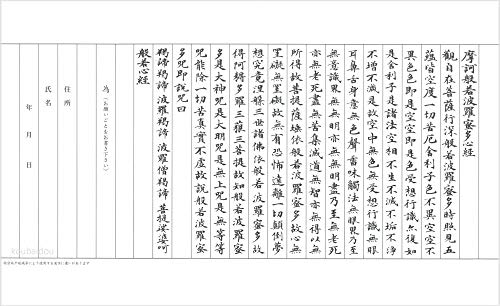 摩訶般若波羅蜜多心経
觀自在菩薩行深般若波羅蜜多時照見五
蘊皆空度一切苦厄舎利子色不異空空不
異色色即是空空即是色受想行識亦復如
是舎利子是諸法空相不生不滅不垢不浄
不増不減是故空中無色無受想行識無眼
耳鼻舌身意無色聲香味觸法無眼界乃至
無意識界無無明亦無無明盡乃至無老死
亦無老死盡無苦集滅道無智亦無得以無
所得故菩提薩埵依般若波羅蜜多故心無
罣礙無罣礙故無有恐怖遠離一切顛倒夢
想究竟涅槃三世諸佛依般若波羅蜜多故
得阿耨多羅三藐三菩提故知般若波羅蜜
多是大神咒是大明咒是無上咒是無等等
咒能除一切苦真實不虚故説般若波羅蜜
多咒即説咒曰
羯諦羯諦 波羅羯諦 波羅僧羯諦 菩提娑婆呵
般若心経
為(お願いごとをお書き下さい)
住所
氏名
年 月 日
koubaidou